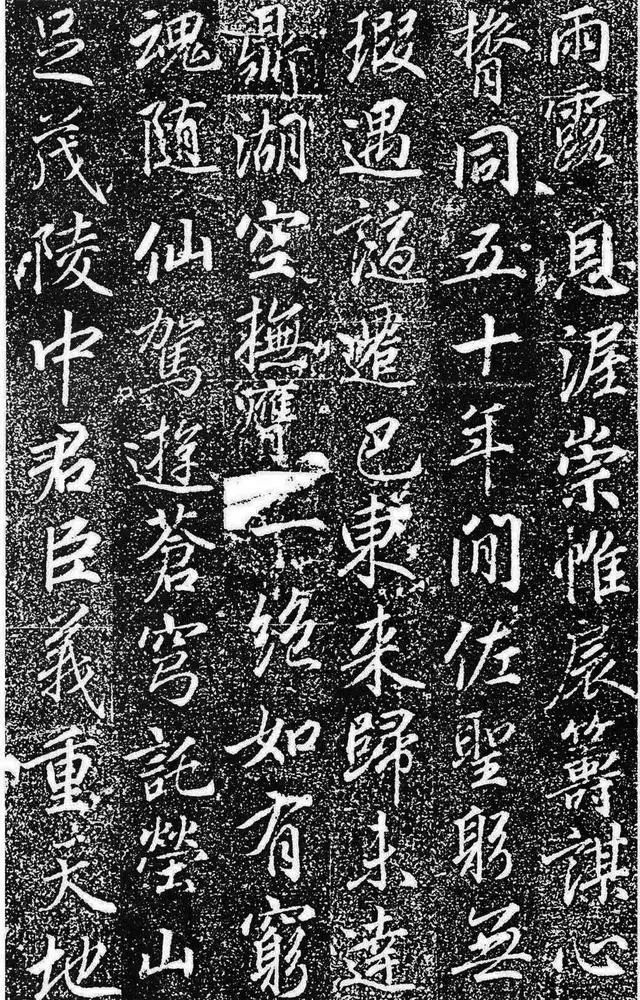 雨露恩渥崇帷扆籌謀心
膂同五十年間佐聖躬無
瑕遇謫遷巴東來歸未達
鼎湖空撫膺一絶如有窮
魂隨仙駕遊蒼穹託塋山
足茂陵中君臣義重天地